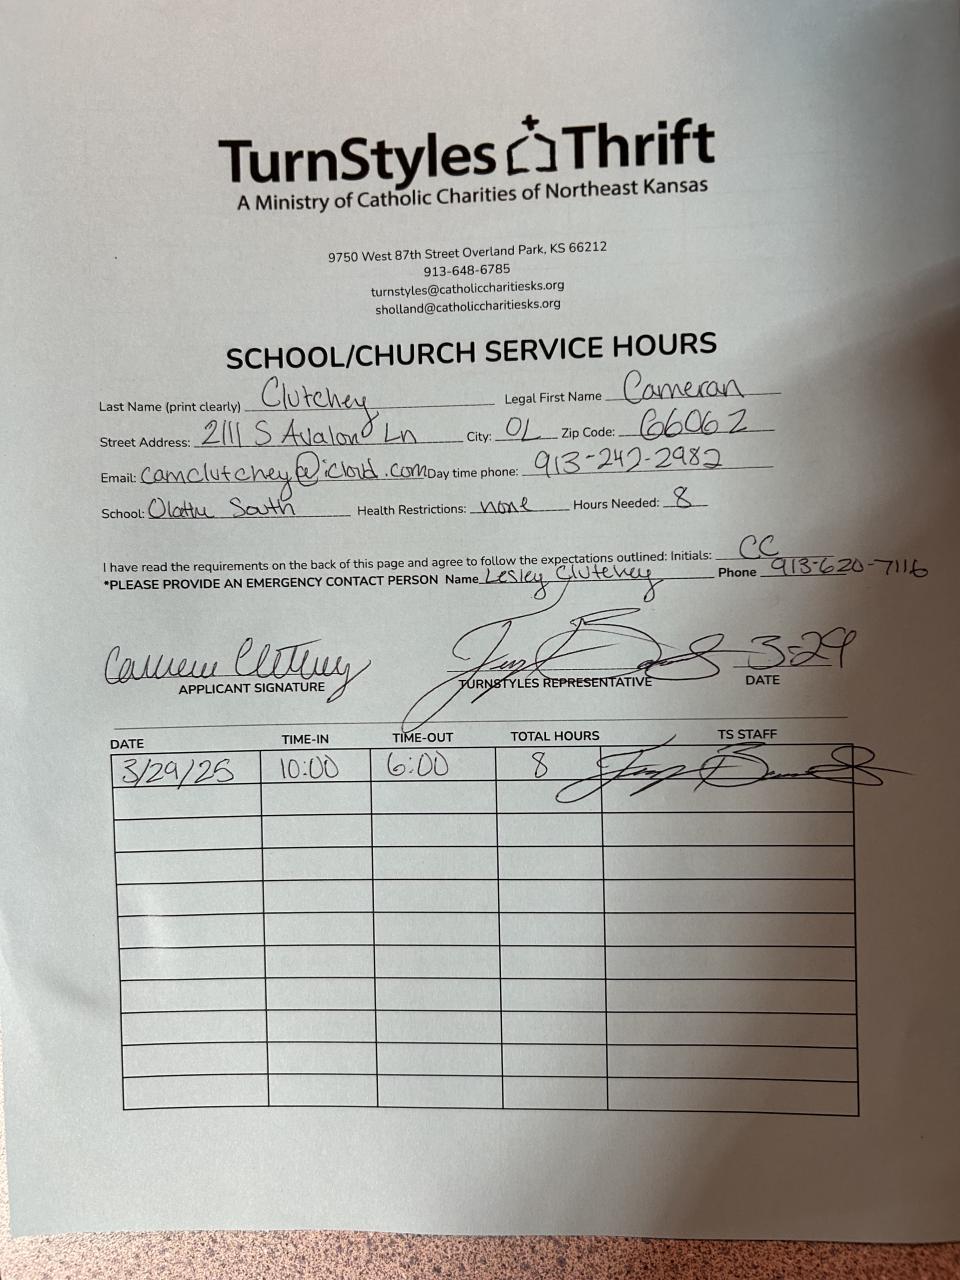 TurnStyles Thrift
A Ministry of Catholic Charities of Northeast Kansas
9750 West 87th Street Overland Park, KS 66212
913-648-6785
turnstyles@catholiccharitiesks.org
sholland@catholiccharitiesks.org
SCHOOL/CHURCH SERVICE HOURS
Last Name (print clearly) Clutchey Legal First Name Cameran
Street Address: 2111 S Avalon Ln City: OL Zip Code: 66062
Email: camclutchey@icloud.com Day time phone: 913-242-2982
School: Olathe South Health Restrictions: none Hours Needed: 8
I have read the requirements on the back of this page and agree to follow the expectations outlined: Initials: CC
*PLEASE PROVIDE AN EMERGENCY CONTACT PERSON Name Lesley Clutchey Phone 913-620-7116
3-29
APPLICANT SIGNATURE TURNSTYLES REPRESENTATIVE DATE
DATE TIME-IN TIME-OUT TOTAL HOURS TS STAFF
3/29/25 10:00 6:00 8